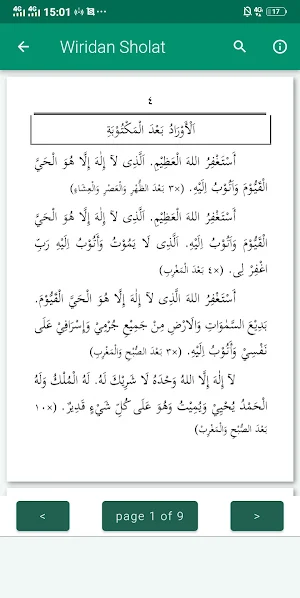 4G 4G 15:01 17
Wiridan Sholat
٤
اَلْأَوْرَادُ بَعْدَ الْمَكْتُوْبَةِ
أَسْتَغْفِرُ اللهَ الْعَظِيْمَ. اَلَّذِى لَآ إِلٰهَ إِلَّا هُوَ الْحَيَّ
الْقَيُّوْمَ وَأَتُوْبُ إِلَيْهِ. (×٣ بَعْدَ الظُّهْرِ وَالْعَصْرِ وَالْعِشَاءِ)
أَسْتَغْفِرُ اللهَ الْعَظِيْمَ. اَلَّذِى لَآ إِلٰهَ إِلَّا هُوَ الْحَيَّ
الْقَيُّوْمَ وَأَتُوْبُ إِلَيْهِ. اَلَّذِى لَا يَمُوْتُ وَأَتُوْبُ إِلَيْهِ رَبِّ
اغْفِرْ لِى. (×٤ بَعْدَ الْمَغْرِبِ)
أَسْتَغْفِرُ اللهَ الَّذِى لَآ إِلٰهَ إِلَّا هُوَ الْحَيَّ الْقَيُّوْمَ.
بَدِيْعَ السَّمٰوَاتِ وَالْاَرْضِ مِنْ جَمِيْعِ جُرْمِيْ وَإِسْرَافِيْ عَلَى
نَفْسِيْ وَأَتُوْبُ إِلَيْهِ. (×٣ بَعْدَ الصُّبْحِ وَالْمَغْرِبِ)
لَآ إِلٰهَ إِلَّا اللهُ وَحْدَهُ لَا شَرِيْكَ لَهُ. لَهُ الْمُلْكُ وَلَهُ
الْحَمْدُ يُحْيِيْ وَيُمِيْتُ وَهُوَ عَلَى كُلِّ شَيْءٍ قَدِيْرٌ. (×١٠
بَعْدَ الصُّبْحِ وَالْمَغْرِبِ)
< page 1 of 9 >